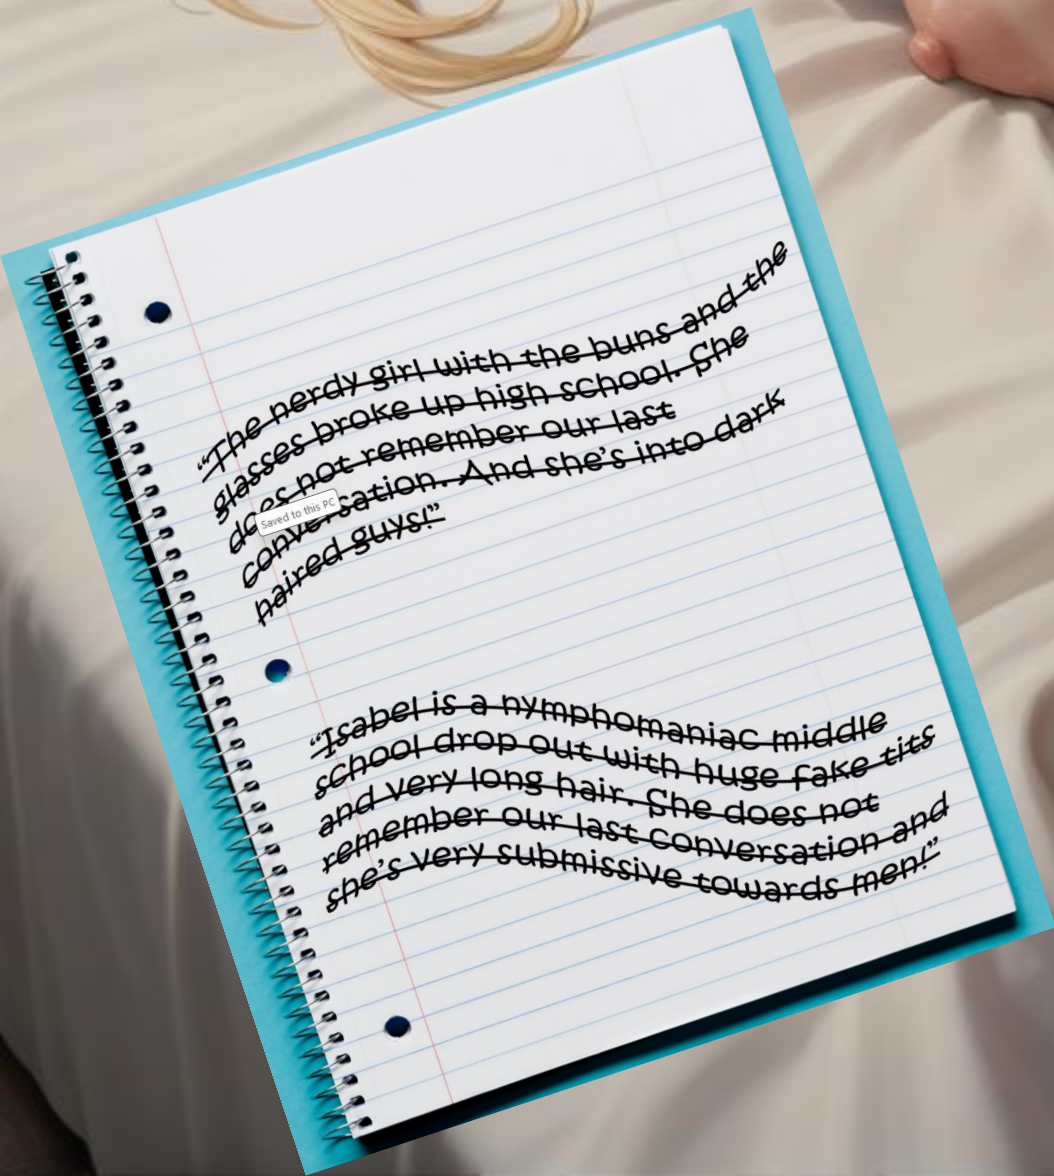 “The nerdy girl with the buns and the
glasses broke up high school. She
does not remember our last
conversation. And she’s into dark
haired guys!”
Saved to this PC
“Isabel is a nymphomaniac middle
school drop out with huge fake tits
and very long hair. She does not
remember our last conversation and
she’s very submissive towards men!”